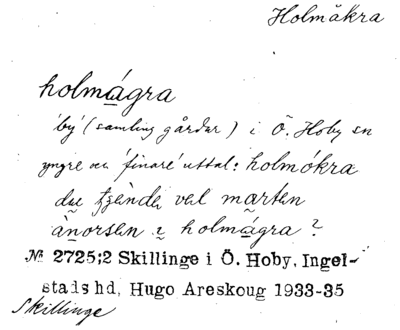 Holmåkra
holmagra
by (samling gårdar) i Ö. Hoby sn
yngre och 'finare' uttal: holmókra
du tjände vel marten
ànorsen i holmagra?
№ 2725;2 Skillinge i Ö. Hoby, Ingel-
stads hd, Hugo Areskoug 1933-35
Skillinge